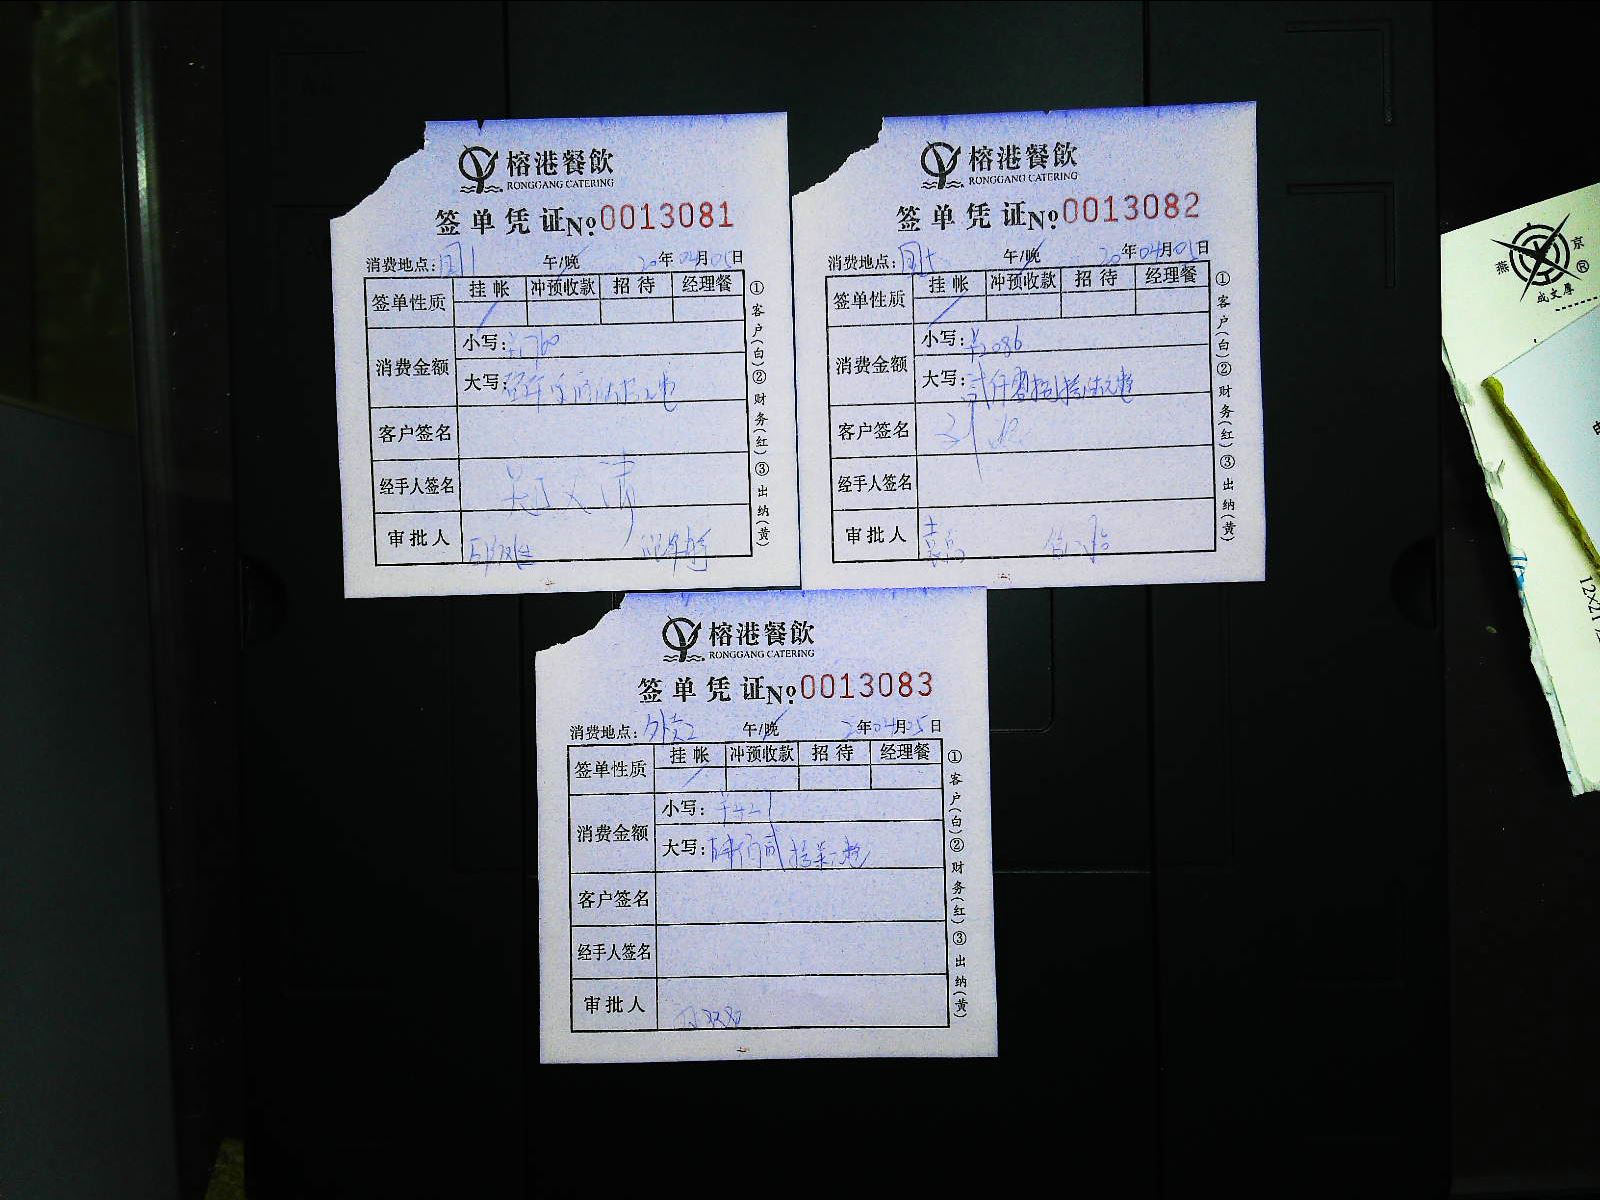 榕港餐飲
RONGGANG CATERING
签单凭证№0013081
消费地点: 午/晚 20年04月05日
签单性质 挂帐 冲预收款 招待 经理餐
消费金额 小写:
大写:
客户签名
经手人签名
审批人
①客户(白)②财务(红)③出纳(黄)
榕港餐飲
RONGGANG CATERING
签单凭证№0013082
消费地点: 午/晚 20年04月05日
签单性质 挂帐 冲预收款 招待 经理餐
消费金额 小写:¥2086
大写:贰仟零捌拾陆元整
客户签名
经手人签名
审批人
①客户(白)②财务(红)③出纳(黄)
榕港餐飲
RONGGANG CATERING
签单凭证№0013083
消费地点:外卖2 午/晚 2年04月05日
签单性质 挂帐 冲预收款 招待 经理餐
消费金额 小写:
大写:
客户签名
经手人签名
审批人
①客户(白)②财务(红)③出纳(黄)
燕京®
成文厚
12×21